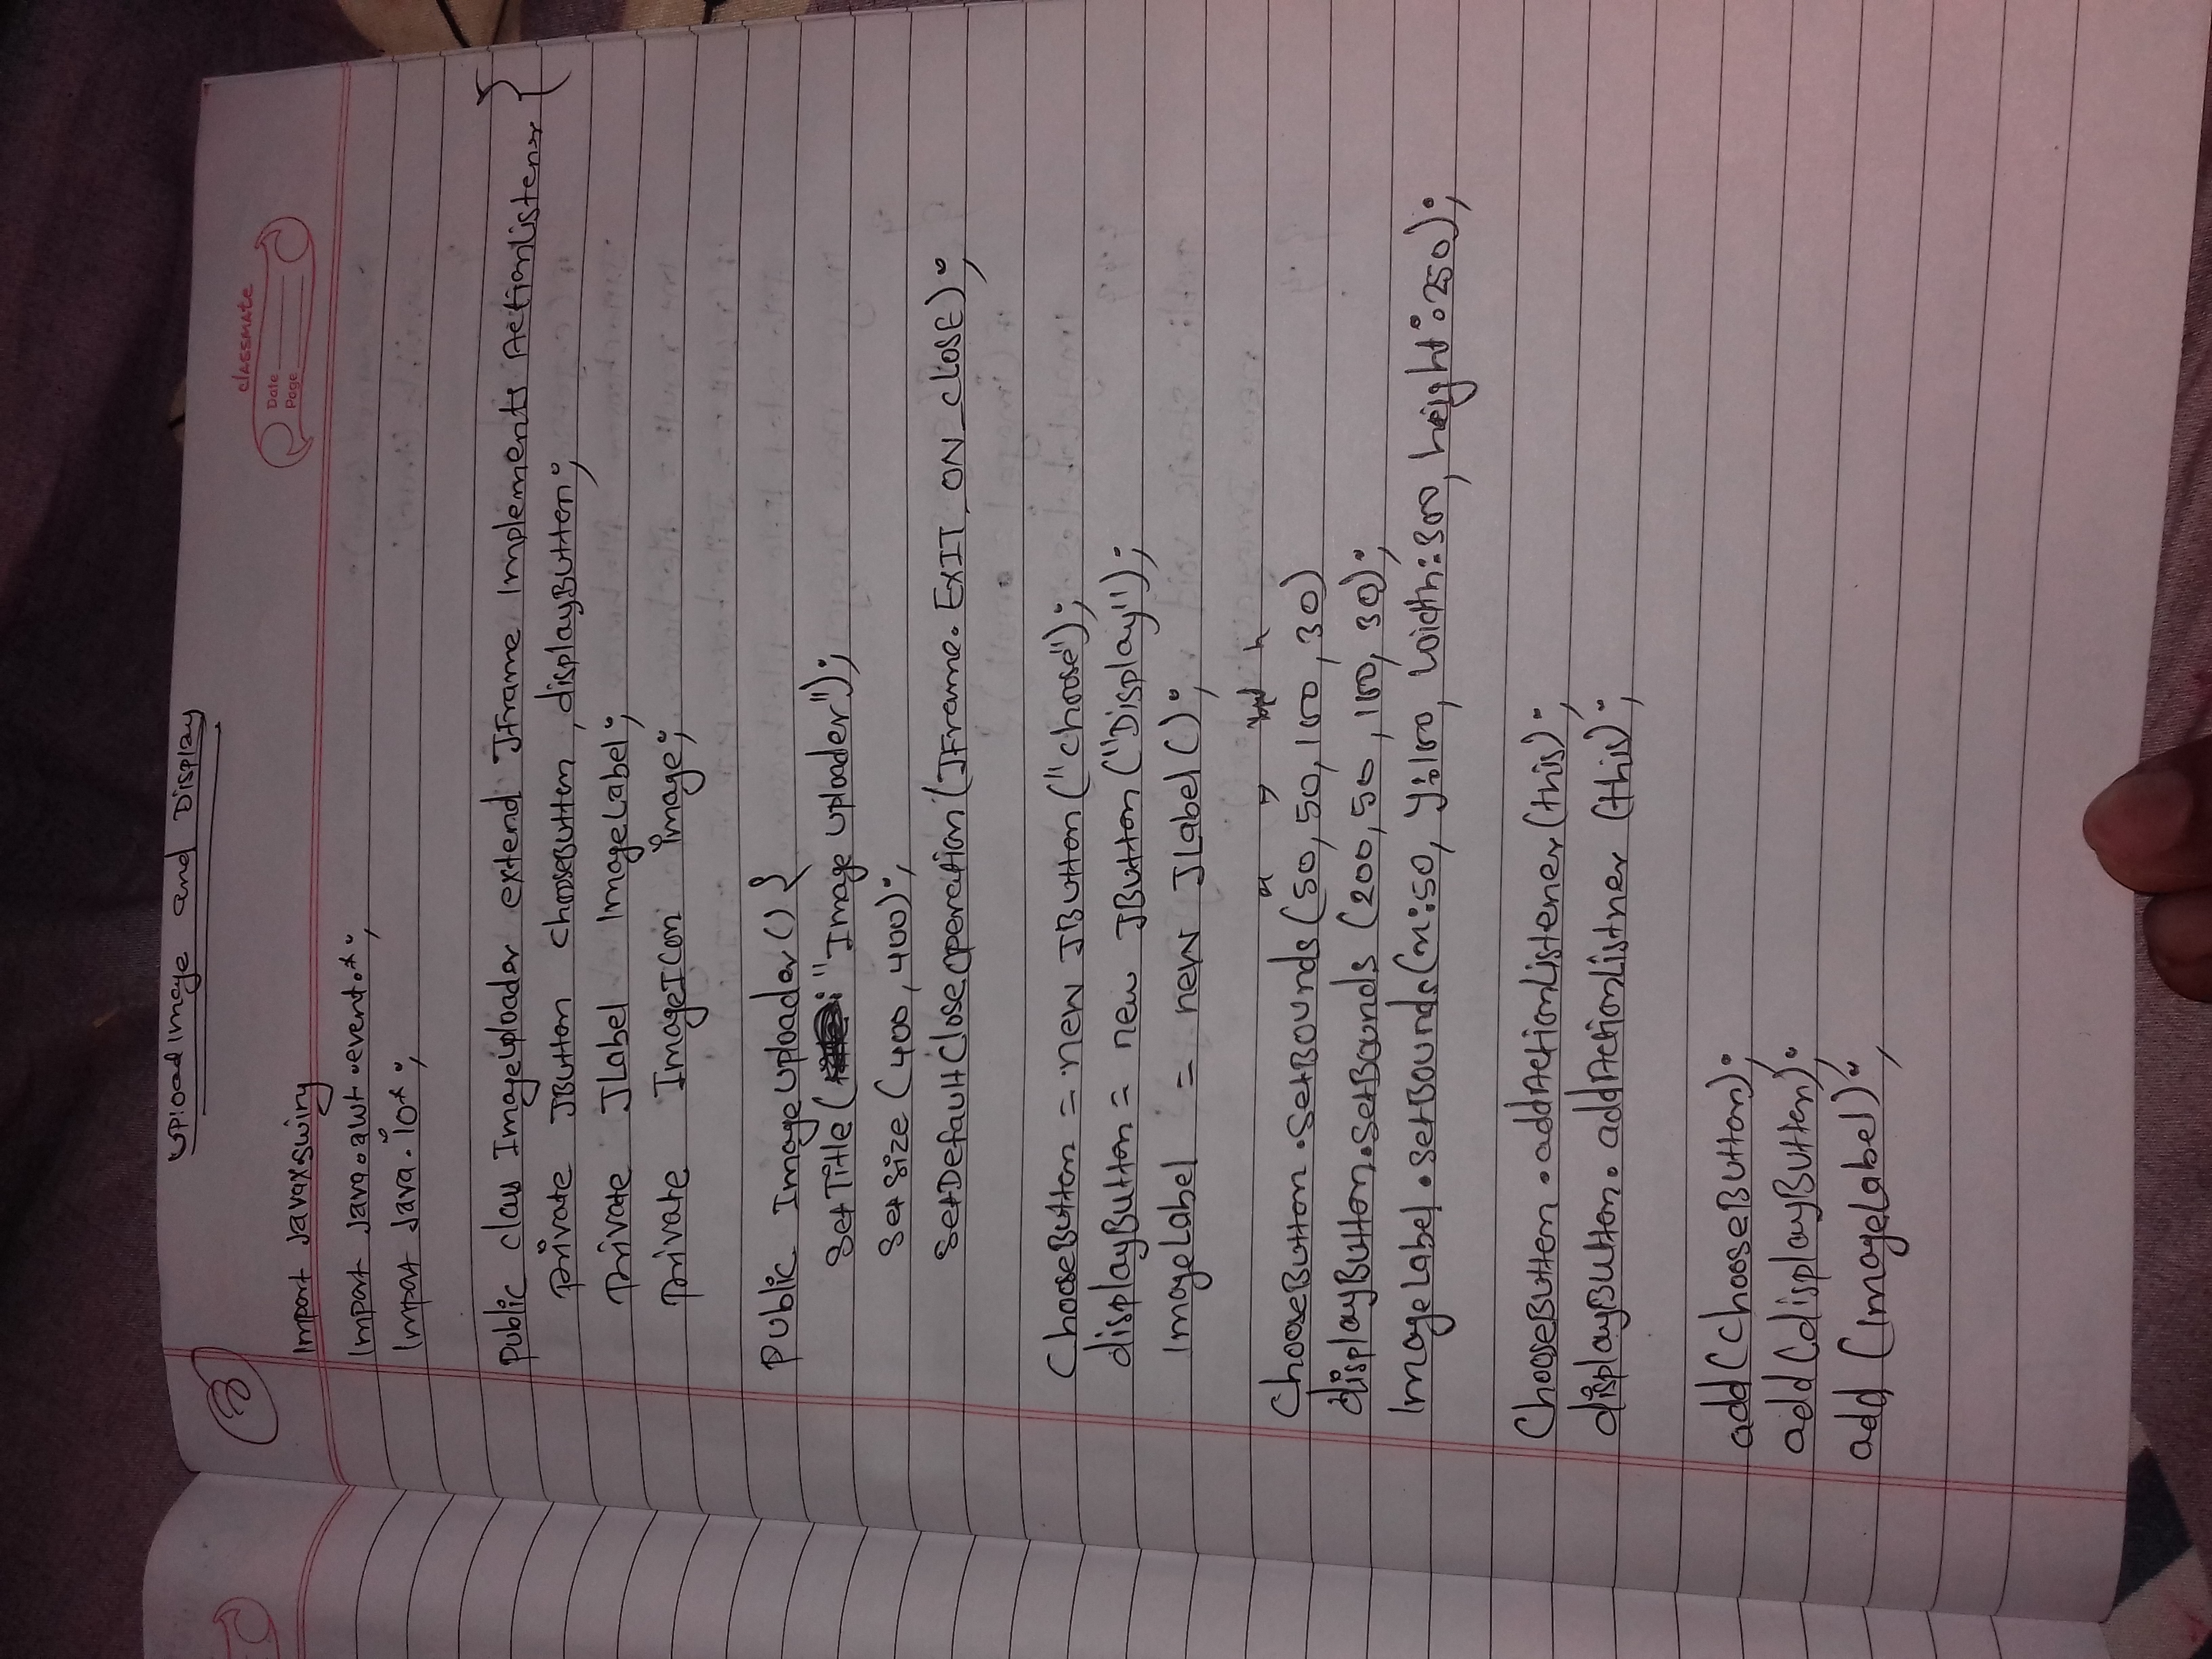 Upload Image and Display
3
classmate
Date
Page
Import Javax.swing
Import Java.awt.event.*;
Import Java.io*;
public class ImageUploader extend JFrame Implements ActionListener {
private JButton ChooseButton, displayButton;
private JLabel ImageLabel;
private ImageICon image;
Public ImageUploader() {
SetTitle( : "Image Uploader");
SetSize (400, 400);
SetDefaultCloseOperation(JFrame.EXIT_ON_CLOSE);
ChooseButton = new JButton("choose");
displayButton = new JButton("Display");
ImageLabel = new JLabel();
h
ChooseButton.SetBounds(50, 50, 100, 30)
displayButton.SetBounds (200, 50, 100, 30);
ImageLabel.SetBounds(x:50, y:100, width:300, height:250);
ChooseButton.addActionListener(this);
displayButton.addActionListner (this);
add(ChooseButton);
add(displayButton);
add (ImageLabel);